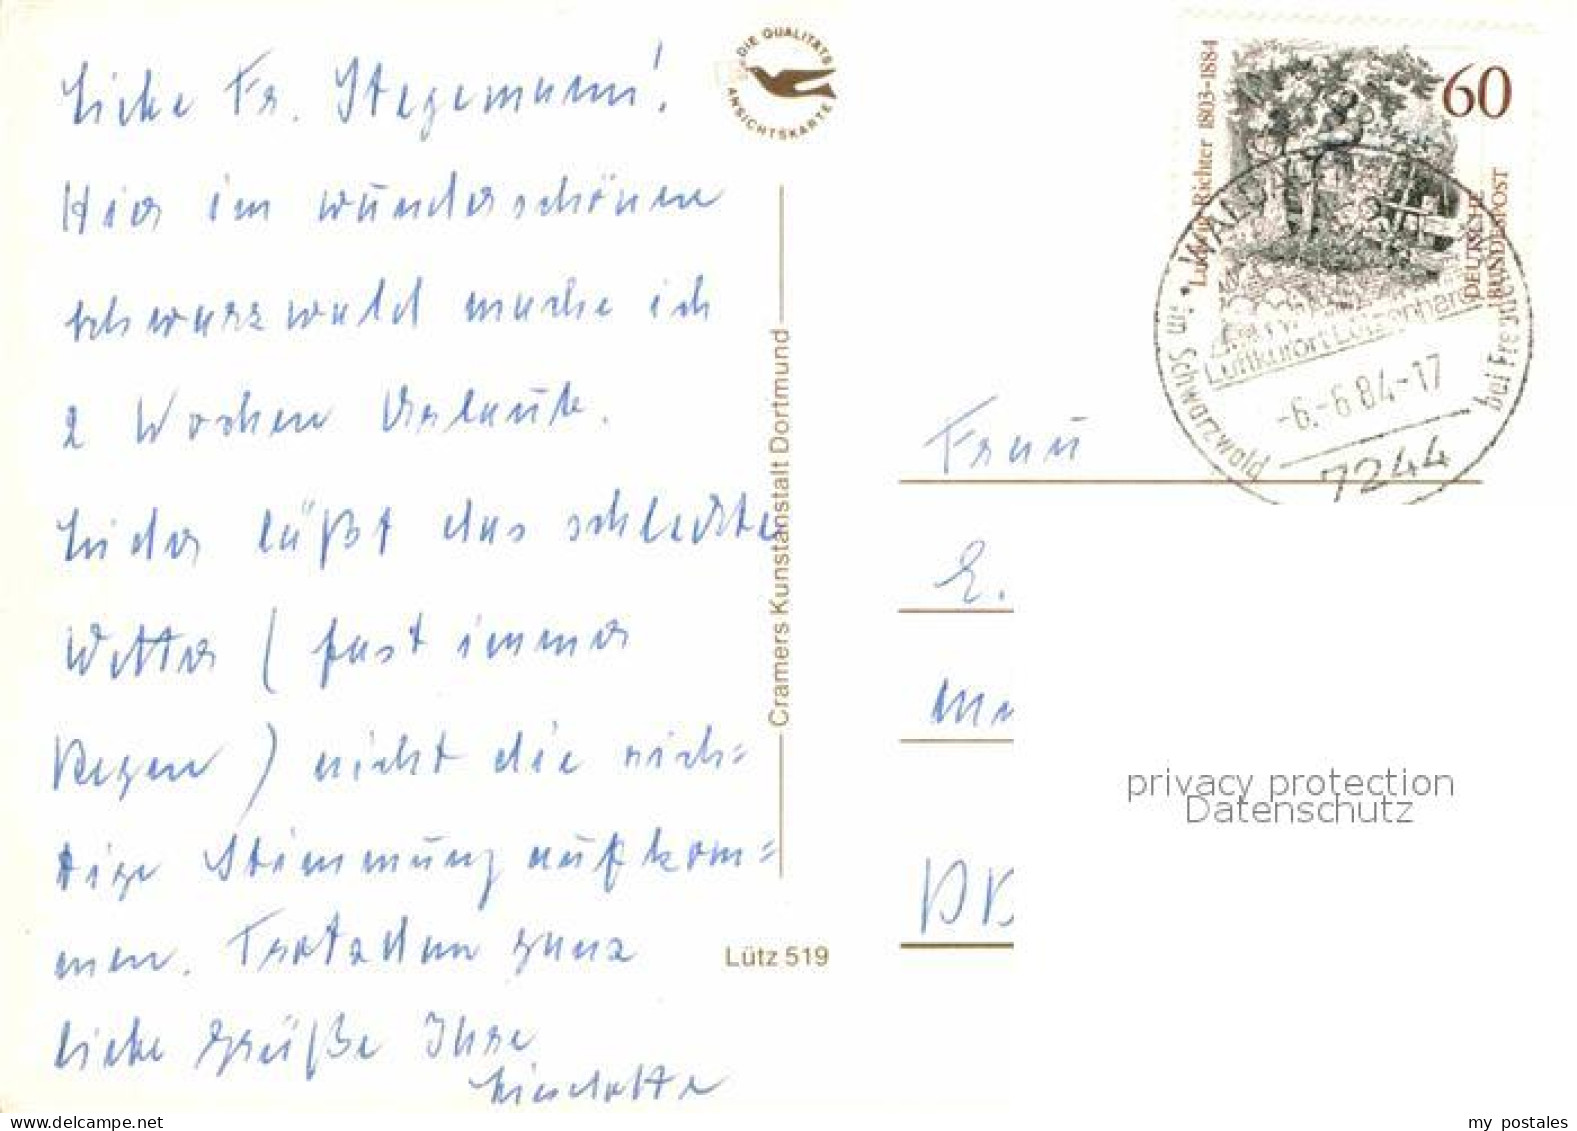 Liebe Fr. Stegemann!
Hier im wunderschönen
Schwarzwald mache ich
2 Wochen Urlaub.
Leider läßt das schlechte
Wetter (fast immer
Regen) nicht die rich=
tige Stimmung aufkom=
men. Trotzdem ganz
liebe Grüße Ihre
Lieselotte
DIE QUALITÄTS
ANSICHTSKARTE
Cramers Kunstanstalt Dortmund
Lütz 519
Ludwig Richter 1803-1884
60
DEUTSCHE
BUNDESPOST
Luftkurort Lützenhardt
-6.-6.84-17
7244
im Schwarzwald
bei Freuden
Frau
E.
privacy protection
Datenschutz
www.delcampe.net
my_postales